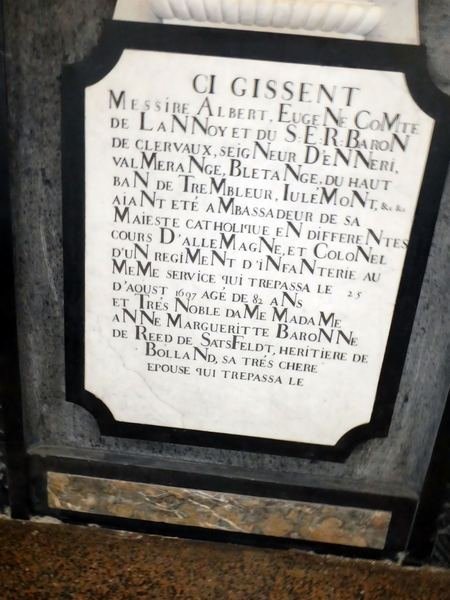 CI GISSENT
MESSIRE ALBERT, EUGENE COMTE
DE LANNOY ET DU S.E.R. BARON
DE CLERVAUX, SEIGNEUR D'ENNERI,
VALMERANGE, BLETANGE, DU HAUT
BAN DE TREMBLEUR, IULÉMONT, &c. &c.
AIANT ETÉ AMBASSADEUR DE SA
MAIESTE CATHOLIQUE EN DIFFERENTES
COURS D'ALLEMAGNE, ET COLONEL
D'UN REGIMENT D'INFANTERIE AU
MEME SERVICE QUI TREPASSA LE 25
D'AOUST 1697 AGÉ DE 82 ANS
ET TRÉS NOBLE DAME MADAME
ANNE MARGUERITTE BARONNE
DE REED DE SATSFELDT, HERITIERE DE
BOLLAND, SA TRÉS CHERE
EPOUSE QUI TREPASSA LE